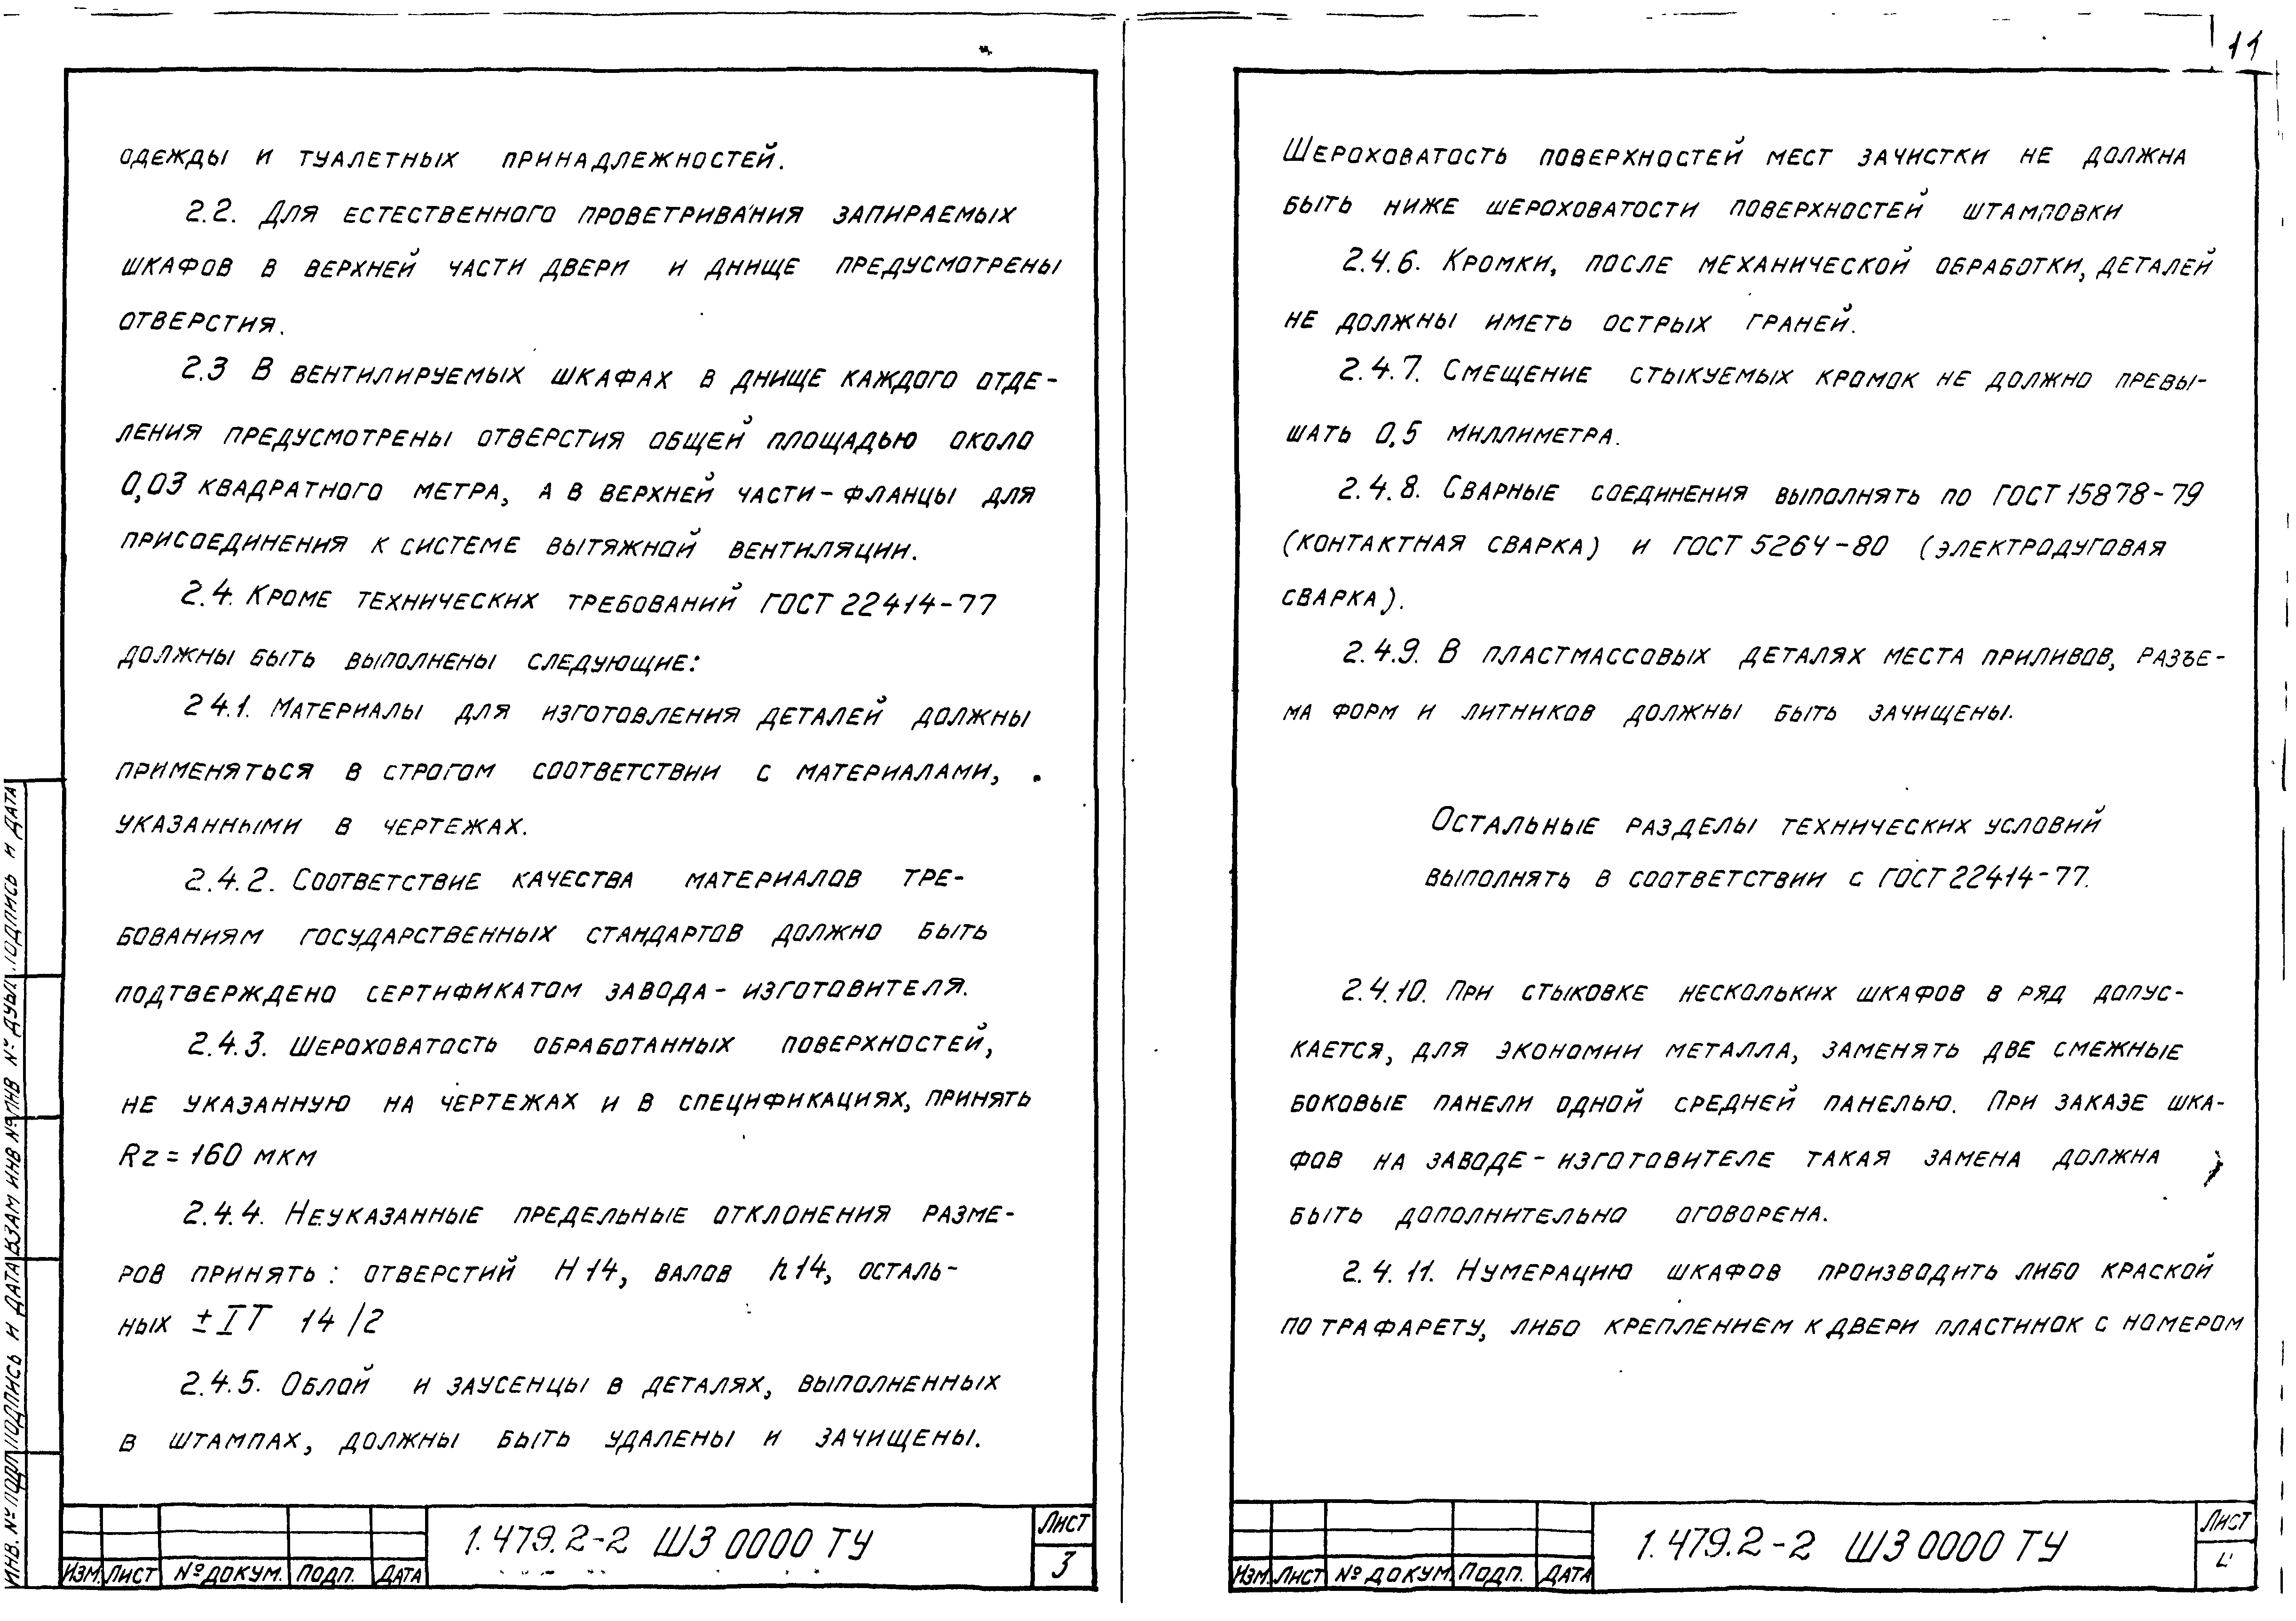 11
одежды и туалетных принадлежностей.
2.2. Для естественного проветривания запираемых
шкафов в верхней части двери и днище предусмотрены
отверстия.
2.3 В вентилируемых шкафах в днище каждого отде-
ления предусмотрены отверстия общей площадью около
0,03 квадратного метра, а в верхней части - фланцы для
присоединения к системе вытяжной вентиляции.
2.4. Кроме технических требований ГОСТ 22414-77
должны быть выполнены следующие:
2 4.1. Материалы для изготовления деталей должны
применяться в строгом соответствии с материалами,
указанными в чертежах.
2.4.2. Соответствие качества материалов тре-
бованиям государственных стандартов должно быть
подтверждено сертификатом завода - изготовителя.
2.4.3. Шероховатость обработанных поверхностей,
не указанную на чертежах и в спецификациях, принять
Rz = 160 мкм
2.4.4. Неуказанные предельные отклонения разме-
ров принять: отверстий H14, валов h14, осталь-
ных ± IT 14/2
2.4.5. Облой и заусенцы в деталях, выполненных
в штампах, должны быть удалены и зачищены.
Изм. Лист № докум. Подп. Дата
1.479.2-2 ШЗ 0000 ТУ
Лист
3
Инв. № подл Подпись и дата Взам инв № Инв № дубл. Подпись и дата
Шероховатость поверхностей мест зачистки не должна
быть ниже шероховатости поверхностей штамповки
2.4.6. Кромки, после механической обработки, деталей
не должны иметь острых граней.
2.4.7. Смещение стыкуемых кромок не должно превы-
шать 0,5 миллиметра.
2.4.8. Сварные соединения выполнять по ГОСТ 15878-79
(контактная сварка) и ГОСТ 5264-80 (электродуговая
сварка).
2.4.9. В пластмассовых деталях места приливов, разъе-
ма форм и литников должны быть зачищены.
Остальные разделы технических условий
выполнять в соответствии с ГОСТ 22414-77.
2.4.10. При стыковке нескольких шкафов в ряд допус-
кается, для экономии металла, заменять две смежные
боковые панели одной средней панелью. При заказе шка-
фов на заводе - изготовителе такая замена должна
быть дополнительно оговорена.
2.4.11. Нумерацию шкафов производить либо краской
по трафарету, либо креплением к двери пластинок с номером
Изм. Лист № докум. Подп. Дата
1.479.2-2 ШЗ 0000 ТУ
Лист
4